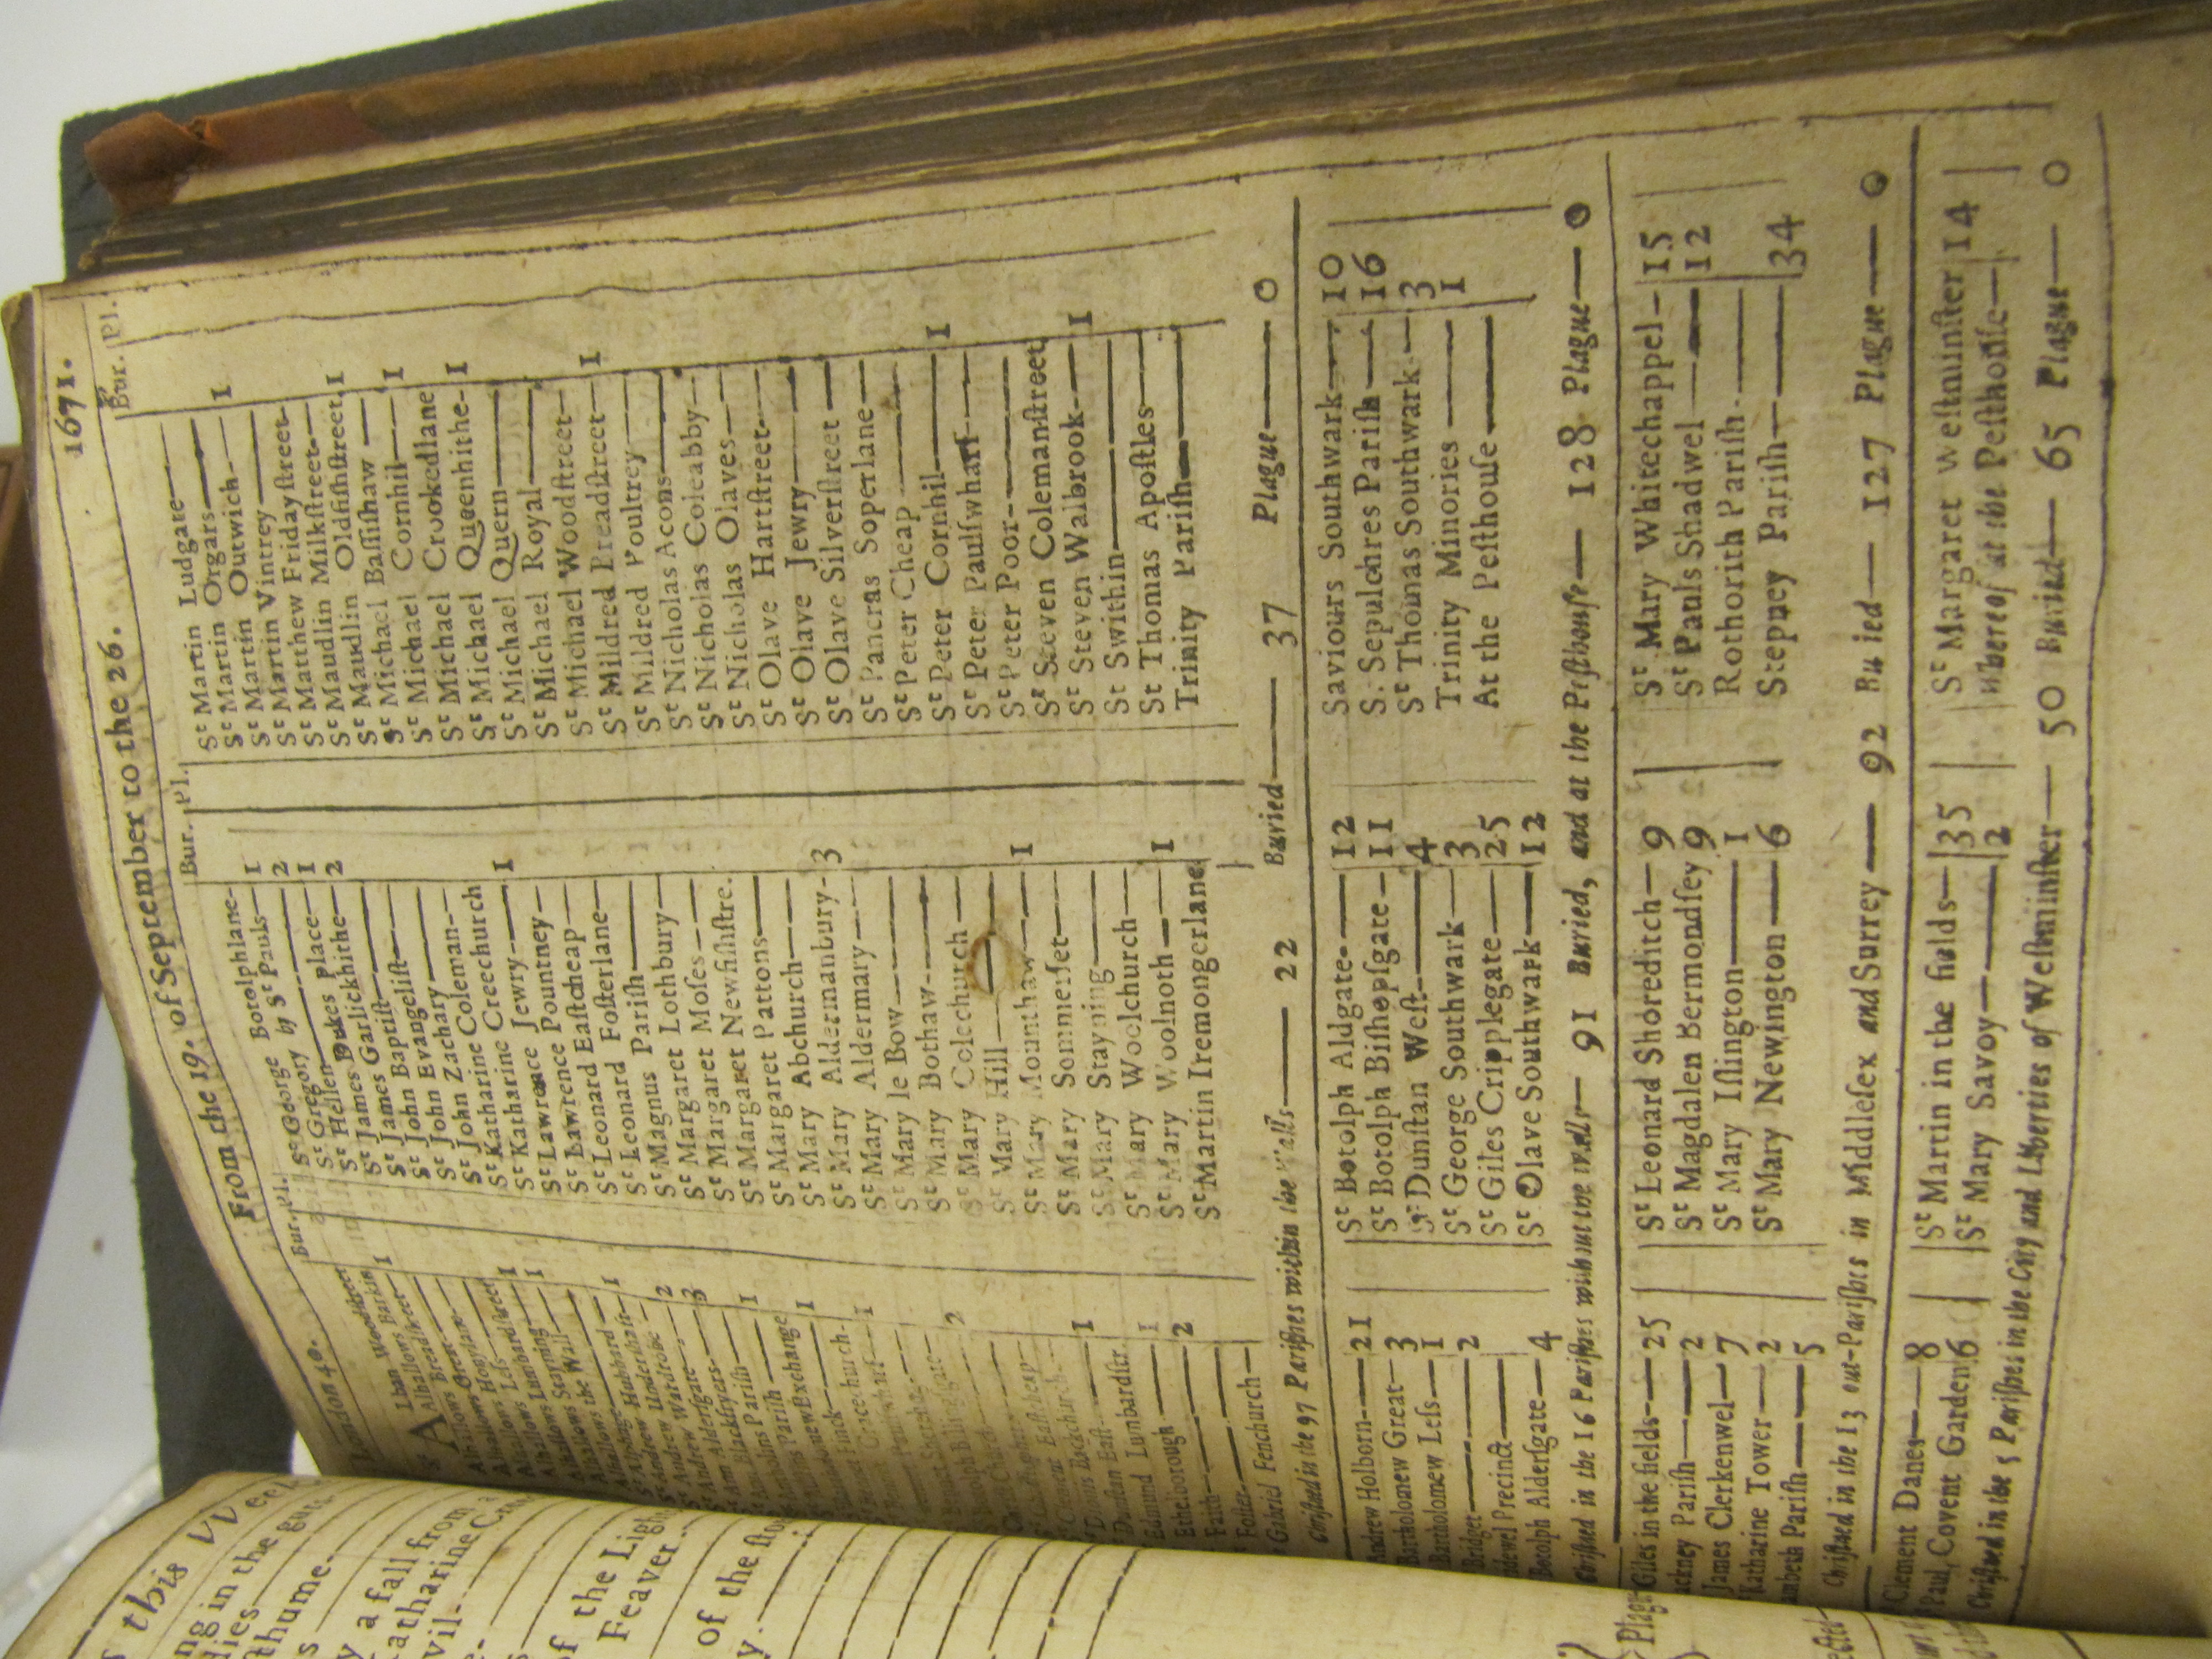 s this Week
ng in the gut
dies
sthume
y a fall from a
Katharine Cree
vil
of the Ligh
Feaver
of the sto
Plague
London 40. From the 19. of September to the 26. 1671.
Bur. Pl.
Bur. Pl.
Bur. Pl.
Lban Woodstreet
Alhallows Barkin 1
Alhallows Breadstreet
Alhallows Great
Alhallows Honylane
Alhallows Less
Alhallows Lumbardstreet 1
Alhallows Stayning 1
Alhallows the Wall
Alphage
Andrew Hubbard 1
St Andrew Undershaft 1
St Andrew Wardrobe 2
St Ann Aldersgate 3
St Ann Blackfryers
Parish 1
Parish
new Exchange 1
Finck
Gracechurch 1
wharf
Billingsgate 2
Eastcheap
Backchurch
Dunstan East 1
Edmund Lumbardstr.
Ethelborough 1
Faith 2
Foster
Gabriel Fenchurch
St George Botolphlane 1
St Gregory by St Pauls 2
St Hellen 1
St James Dukes place 2
St James Garlickhithe
St John Baptist
St John Evangelist
St John Zachary
St Katharine Coleman
St Katharine Creechurch 1
St Lawrence Jewry
St Lawrence Pountney
St Leonard Eastcheap
St Leonard Fosterlane
St Magnus Parish
St Margaret Lothbury
St Margaret Moses
St Margaret Newfishstre.
St Margaret Pattons
St Mary Abchurch
St Mary Aldermanbury 3
St Mary Aldermary
St Mary le Bow
St Mary Bothaw
St Mary Colechurch
St Mary Hill
St Mary Mounthaw 1
St Mary Sommerset
St Mary Stayning
St Mary Woolchurch
St Mary Woolnoth 1
St Martin Iremongerlane
St Martin Ludgate
St Martin Orgars
St Martin Outwich 1
St Martin Vintrey
St Matthew Fridaystreet
St Maudlin Milkstreet
St Maudlin Oldfishstreet 1
St Michael Bassishaw
St Michael Cornhil 1
St Michael Crookedlane
St Michael Queenhithe 1
St Michael Quern
St Michael Royal
St Michael Woodstreet
St Mildred Breadstreet 1
St Mildred Poultrey
St Nicholas Acons
St Nicholas Coleabby
St Nicholas Olaves
St Olave Hartstreet
St Olave Jewry
St Olave Silverstreet
St Pancras Soperlane
St Peter Cheap
St Peter Cornhil 1
St Peter Paulswharf
St Peter Poor
St Steven Colemanstreet
St Steven Walbrook 1
St Swithin
St Thomas Apostles
Trinity Parish
Christned in the 97 Parishes within the Walls 22 Buried 37 Plague 0
Andrew Holborn 21
Bartholomew Great 3
Bartholomew Less 1
Bridget 2
Bridewel Precinct
Botolph Aldersgate 4
St Botolph Aldgate 12
St Botolph Bishopsgate 11
St Dunstan West 4
St George Southwark 3
St Giles Cripplegate 25
St Olave Southwark 12
Saviours Southwark 10
S. Sepulchres Parish 16
St Thomas Southwark 3
Trinity Minories 1
At the Pesthouse
Christned in the 16 Parishes without the walls 91 Buried, and at the Pesthouse 128 Plague 0
Giles in the fields 25
Hackney Parish 2
James Clerkenwel 7
Katharine Tower 2
Lambeth Parish 5
St Leonard Shoreditch 9
St Magdalen Bermondsey 9
St Mary Islington 1
St Mary Newington 6
St Mary Whitechappel 15
St Pauls Shadwel 12
Rothorith Parish
Stepney Parish 34
Christned in the 13 out-Parishes in Middlesex and Surrey 92 Buried 127 Plague 0
Clement Danes 8
Paul Covent Garden 6
St Martin in the fields 35
St Mary Savoy 2
St Margaret Westminster 14
whereof at the Pesthouse
Christned in the 5 Parishes in the City and Liberties of Westminster 50 Buried 65 Plague 0